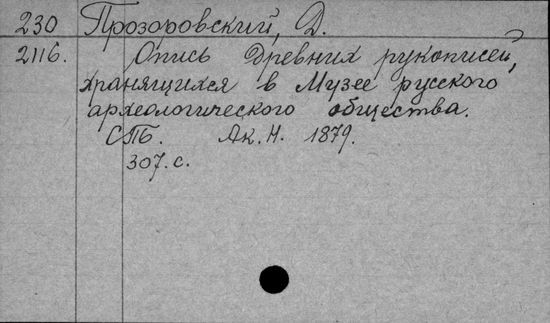 230 Прозоровский, Д.
2116. Опись древних рукописей,
хранящихся в Музее русского
археологического общества.
СПБ. Ак. Н. 1879.
307. с.